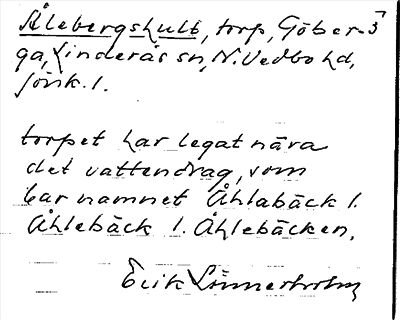 Ålebergshult, torp, Göber-
ga, Linderås sn, N. Vedbo hd,
Jönk. l.
torpet har legat nära
det vattendrag, som
bar namnet Åhlabäck l.
Åhlebäck l. Åhlebäcken.
Erik Linnerholm